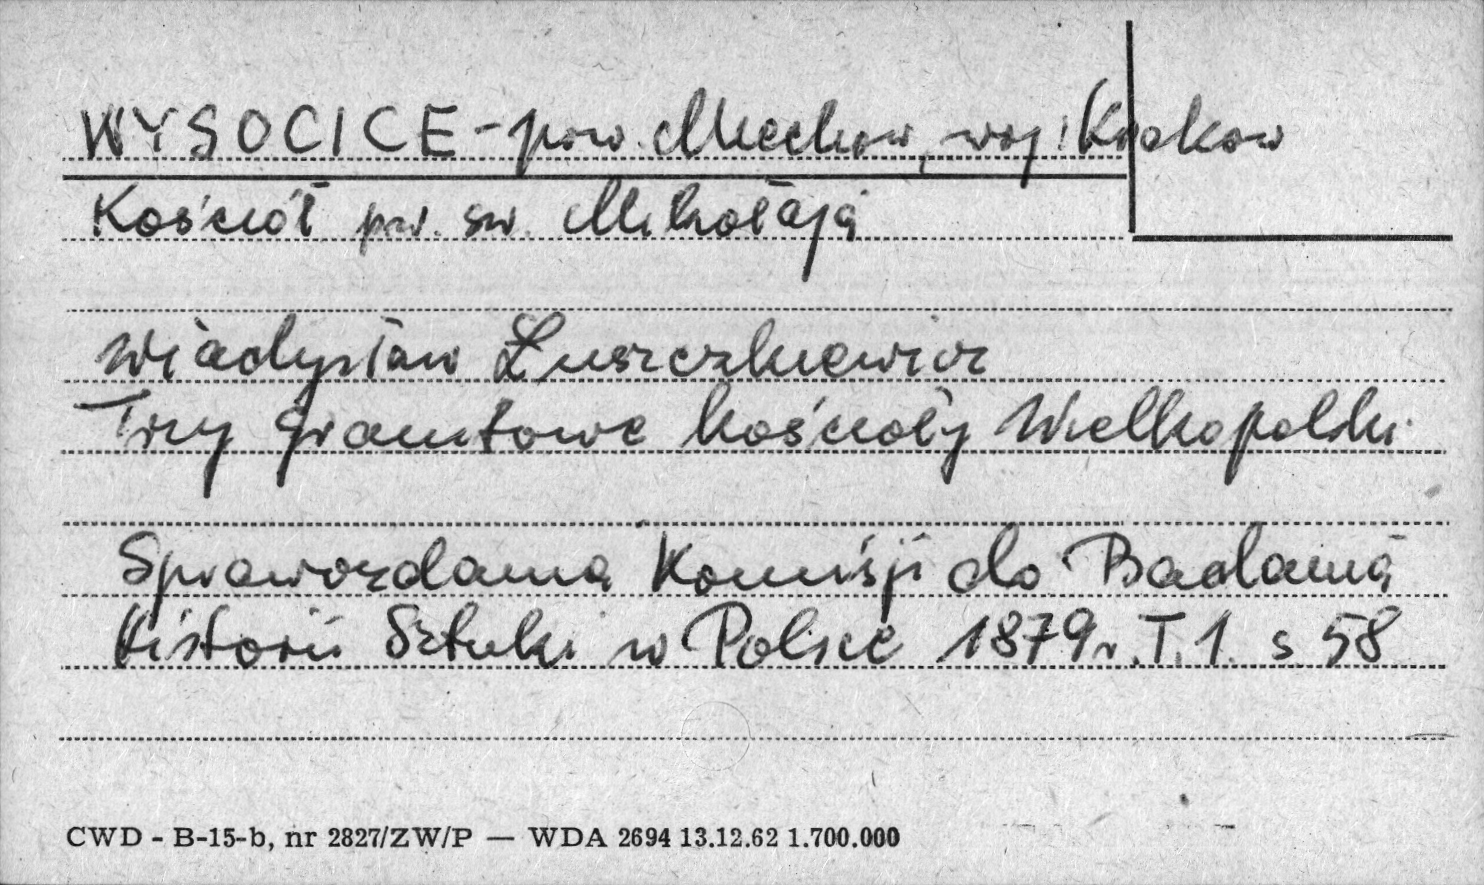 WYSOCICE - pow. Miechów, woj. Kraków
Kościół pw. św. Mikołaja
Władysław Łuszczkiewicz
Trzy granitowe kościoły Wielkopolski
Sprawozdania Komisji do Badania
Historii Sztuki w Polsce 1879 r. T. 1. s 58
CWD - B-15-b, nr 2827/ZW/P — WDA 2694 13.12.62 1.700.000